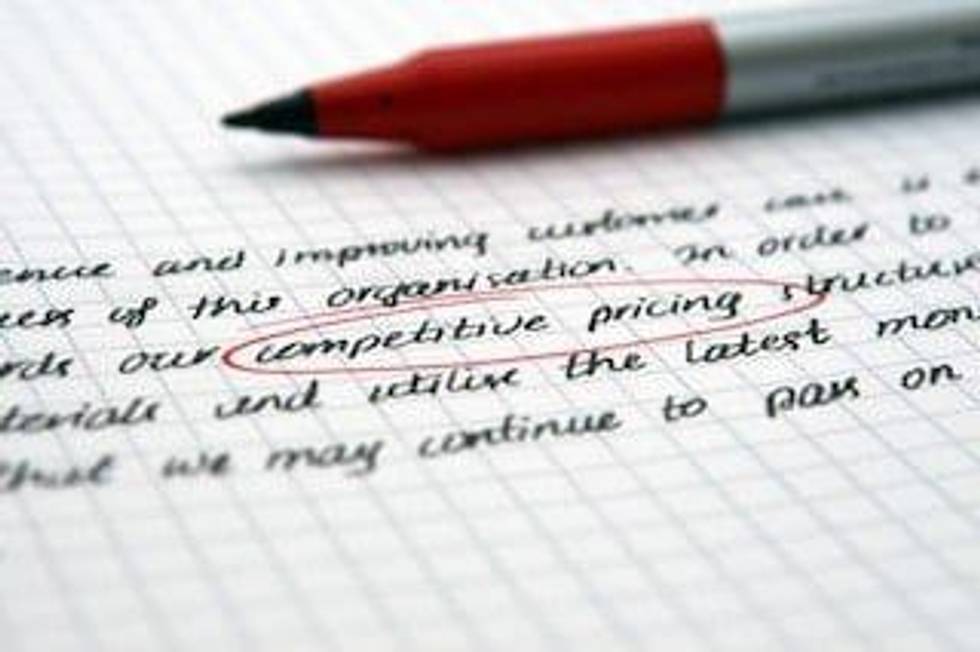 ence and improving customer care is a
cess of this organisation. In order to
rds our competitive pricing structure
terials and utilise the latest mon
that we may continue to pass on